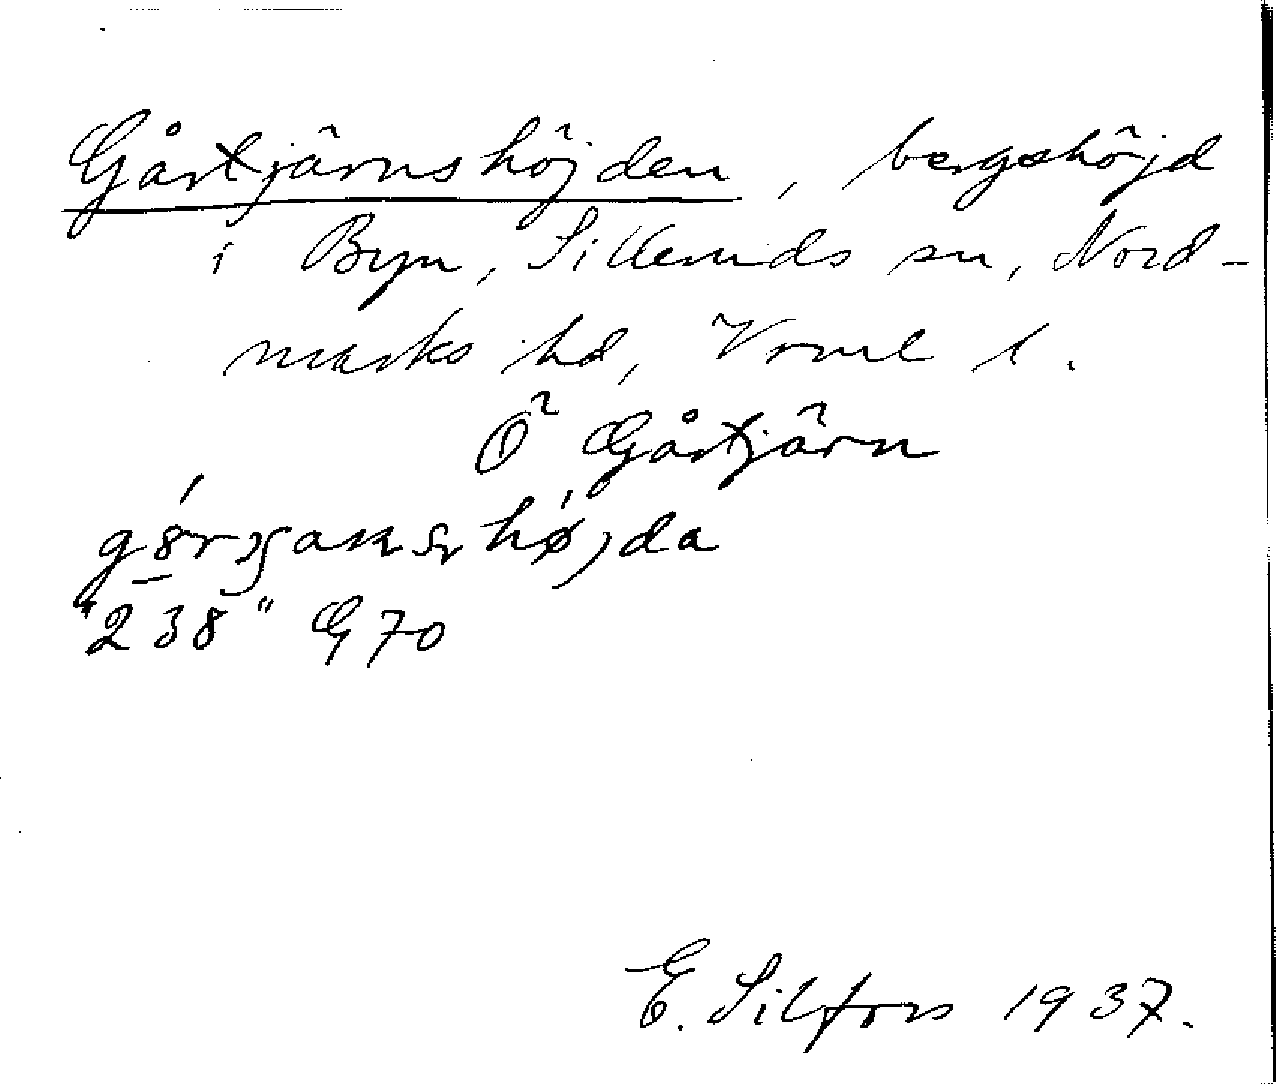 Gårtjärnshöjden, bergshöjd
i Byn, Silleruds sn, Nord-
marks hd, Vrml l.
Ö Gårtjärn
"238" G 70
E. Silfors 1937.